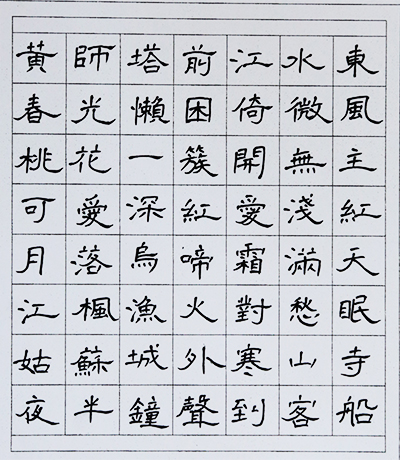 黃師塔前江水東
春光懶困倚微風
桃花一簇開無主
可愛深紅愛淺紅
月落烏啼霜滿天
江楓漁火對愁眠
姑蘇城外寒山寺
夜半鐘聲到客船